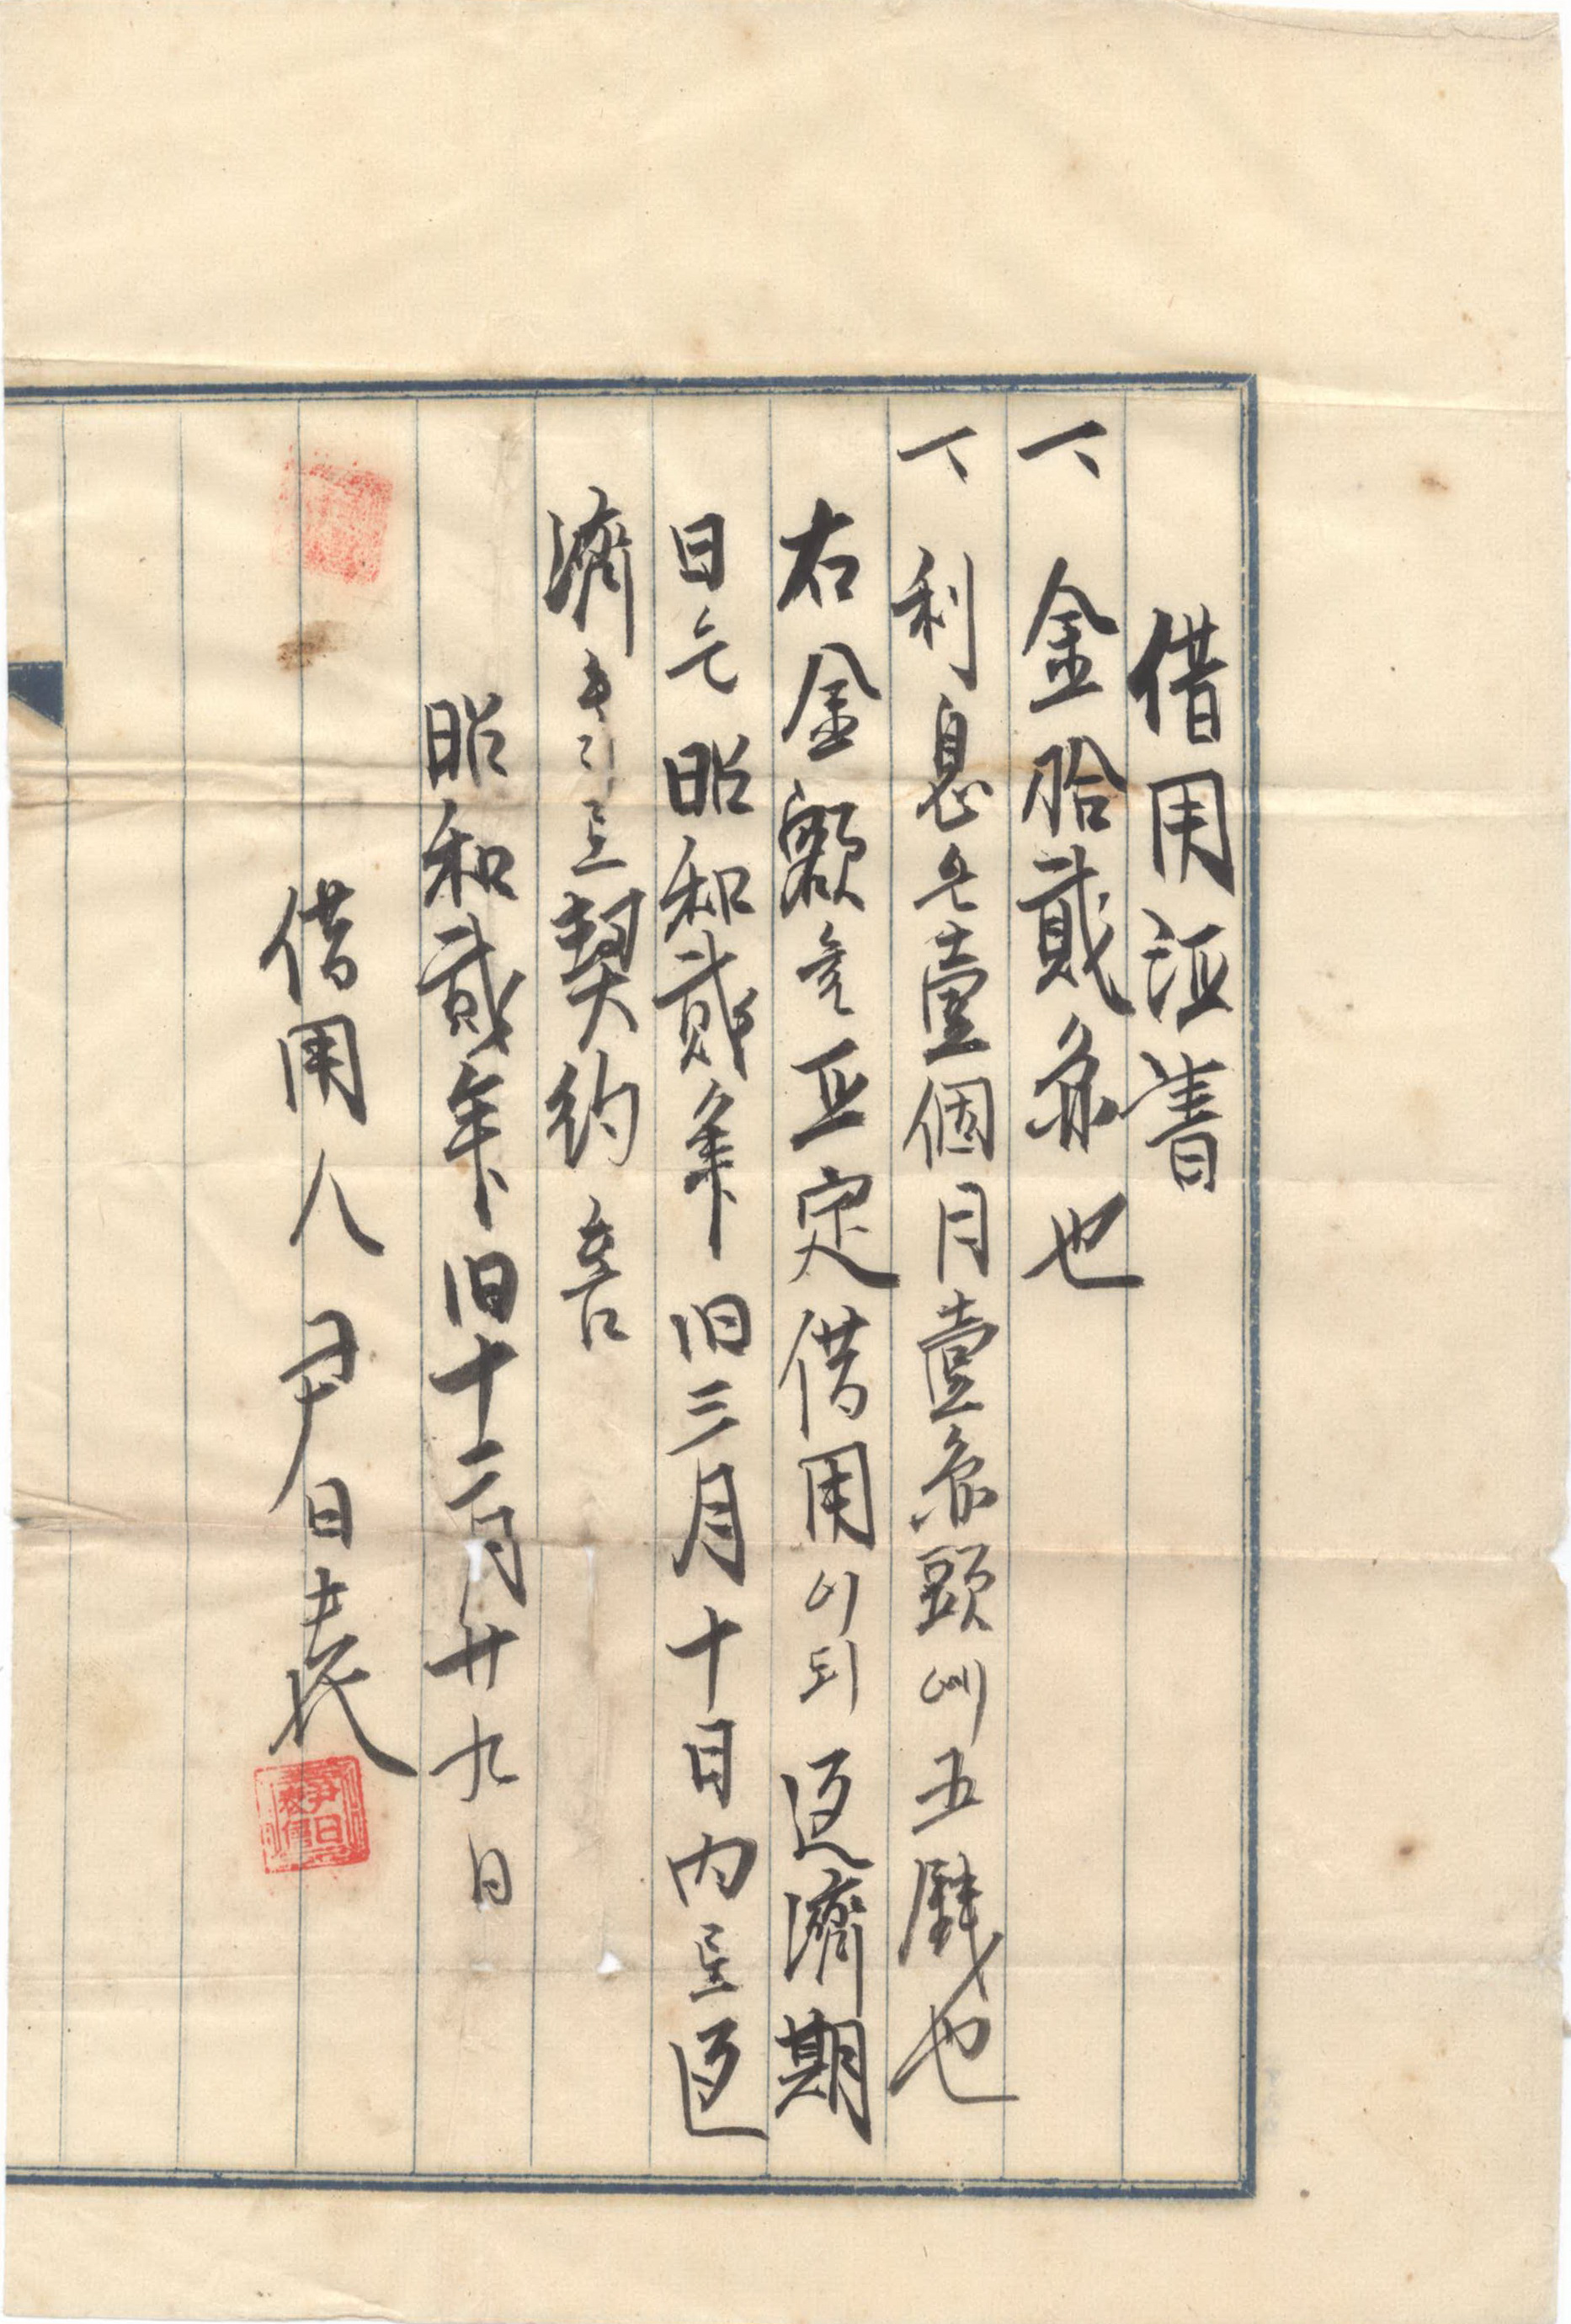 借用证書
一、金拾貳圓也
一、利息은壹個月壹圓頭에五戔也
右金額을正定借用이되返濟期
日은昭和貳年旧三月十日內로返
濟하기로契約홈
昭和貳年旧十二月廿九日
借用人 尹日表